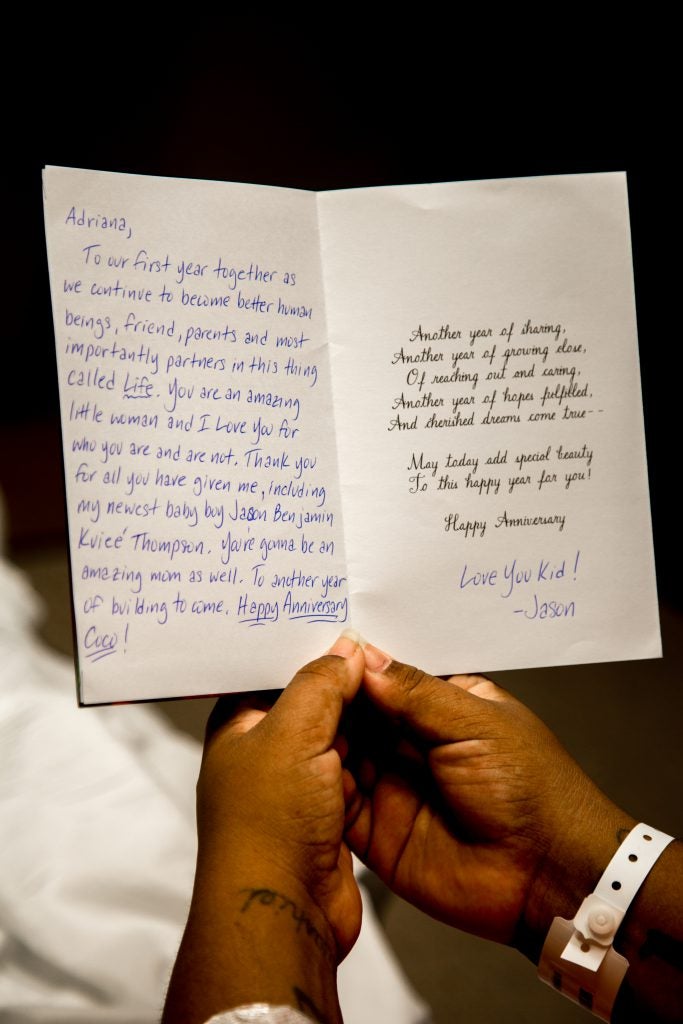 Adriana,
To our first year together as
we continue to become better human
beings, friend, parents and most
importantly partners in this thing
called Life. You are an amazing
little woman and I Love You for
who you are and are not. Thank you
for all you have given me, including
my newest baby boy Jason Benjamin
Kviee' Thompson. You're gonna be an
amazing mom as well. To another year
of building to come. Happy Anniversary
Coco!
Another year of sharing,
Another year of growing close,
Of reaching out and caring,
Another year of hopes fulfilled,
And cherished dreams come true--
May today add special beauty
To this happy year for you!
Happy Anniversary
Love You Kid!
-Jason